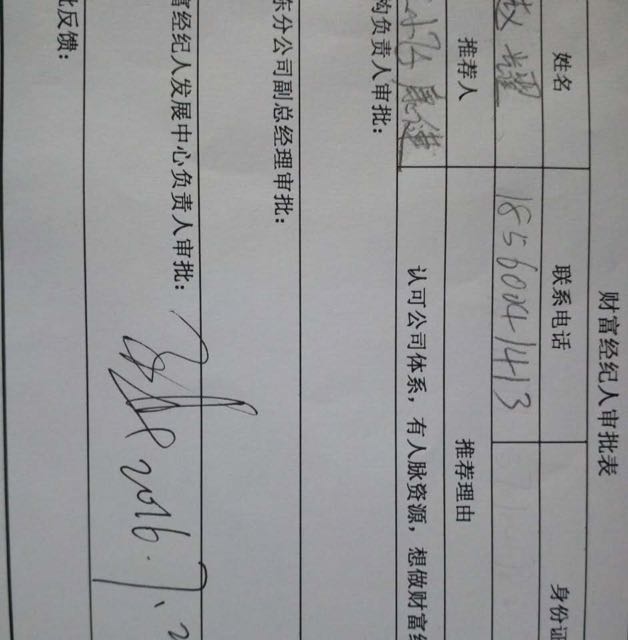 财富经纪人审批表
姓名 联系电话 身份证
赵耀 18560041413
推荐人 推荐理由
康健 认可公司体系，有人脉资源，想做财富经
构负责人审批：
东分公司副总经理审批：
富经纪人发展中心负责人审批：
2016.7.2
批反馈：